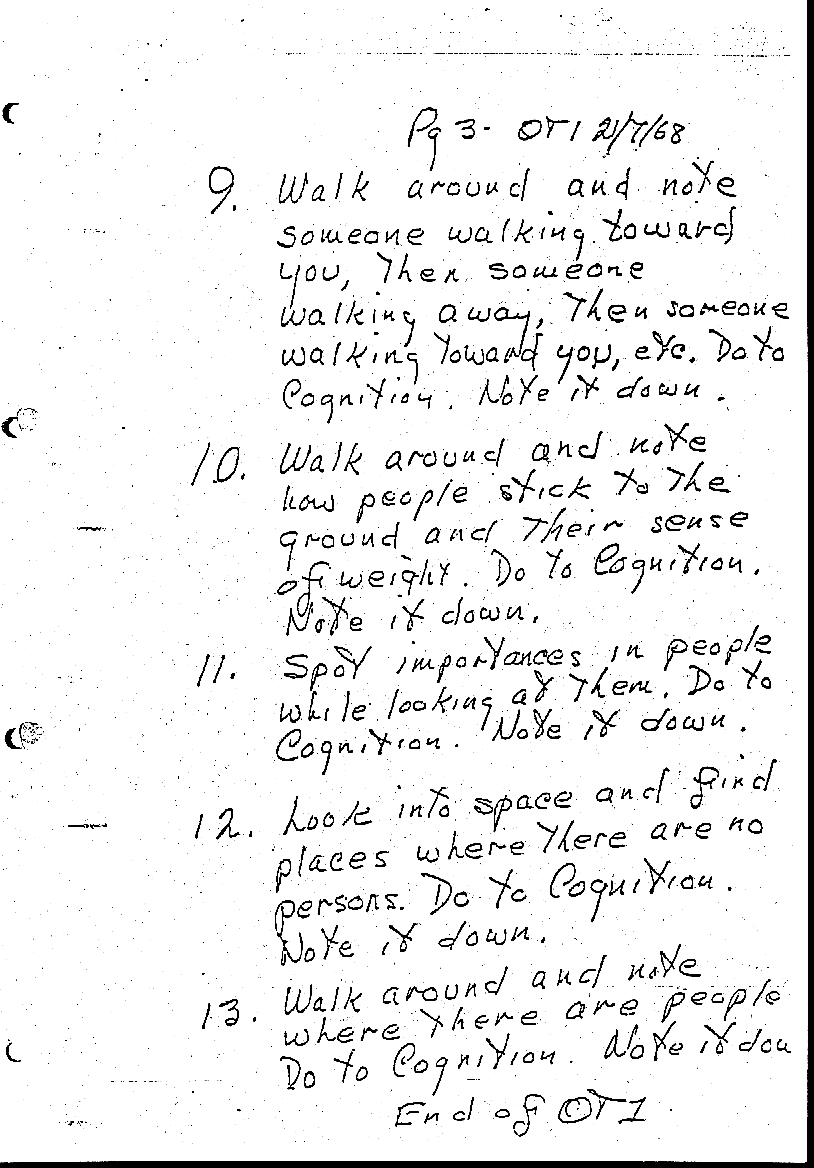 Pg 3- OT1 21/7/68
9. Walk around and note
someone walking toward
you, Then someone
walking away, Then someone
walking toward you, etc. Do to
Cognition. Note it down.
10. Walk around and note
how people stick to The
ground and Their sense
of weight. Do to Cognition.
Note it down.
11. Spot importances in people
while looking at Them. Do to
Cognition. Note it down.
12. Look into space and find
places where there are no
persons. Do to Cognition.
Note it down.
13. Walk around and note
where there are people
Do to Cognition. Note it dow
End of OT1